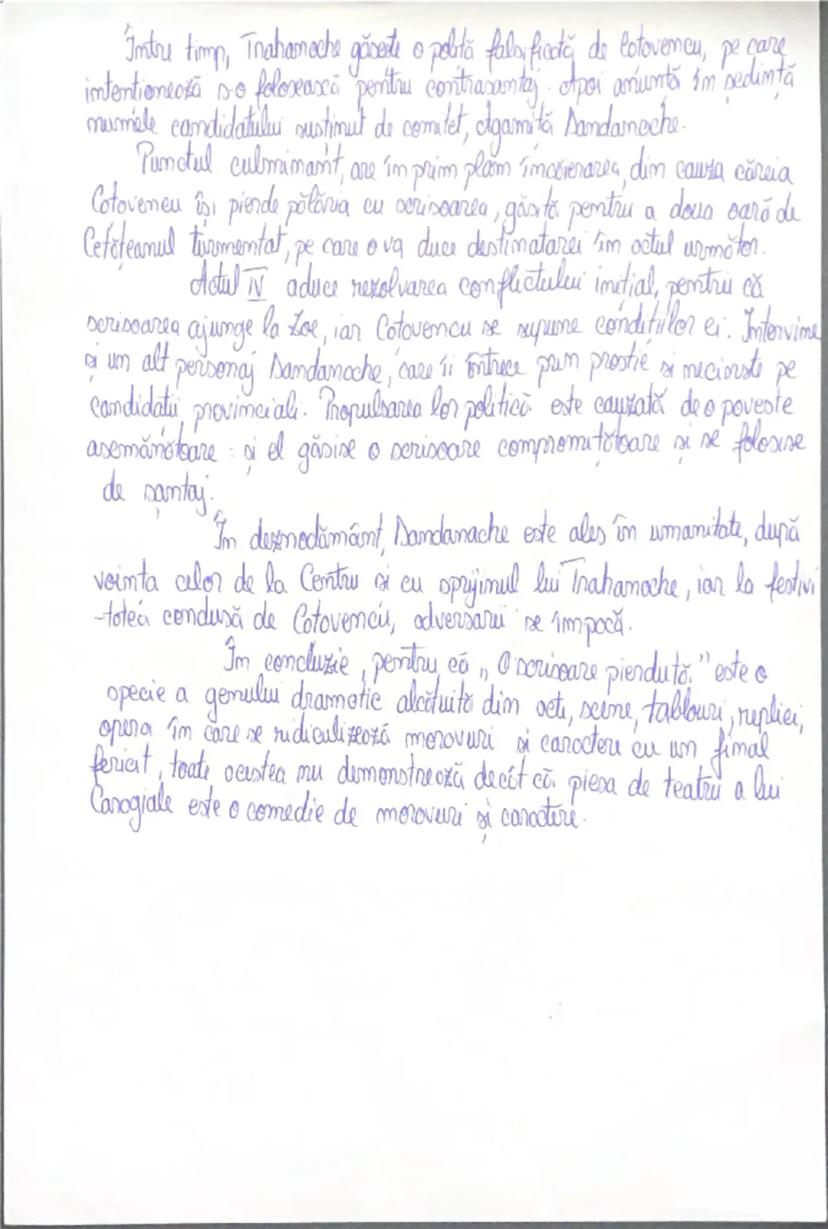 Între timp, Trahamache găsește o poliță falsificată de Cotovencu, pe care
intenționează s-o folosească pentru contrașantaj. Apoi anunță în ședință
numele candidatului susținut de comitet, Agamiță Dandanache.
Punctul culminant, are în prim plan încăierarea, din cauza căreia
Cotovencu își pierde pălăria cu scrisoarea, găsită pentru a doua oară de
Cetățeanul turmentat, pe care o va duce destinatarei în actul următor.
Actul IV aduce rezolvarea conflictului inițial, pentru că
scrisoarea ajunge la Zoe, iar Cotovencu se supune condițiilor ei. Intervine
și un alt personaj Dandanache, care îi întrece prin prostie și necinste pe
candidații provinciali. Propulsarea lor politică este cauzată de o poveste
asemănătoare: și el găsise o scrisoare compromițătoare și se folosise
de șantaj.
În deznodământ, Dandanache este ales în umanitate, după
voința celor de la Centru și cu sprijinul lui Trahamache, iar la festivi
-tatea condusă de Cotovencu, adversarii se împacă.
În concluzie, pentru că „O scrisoare pierdută." este o
specie a genului dramatic alcătuită din acte, scene, tablouri, replici,
opera în care se ridiculizează moravuri și caractere cu un final
fericit, toate acestea nu demonstrează decât că piesa de teatru a lui
Caragiale este o comedie de moravuri și caractere.